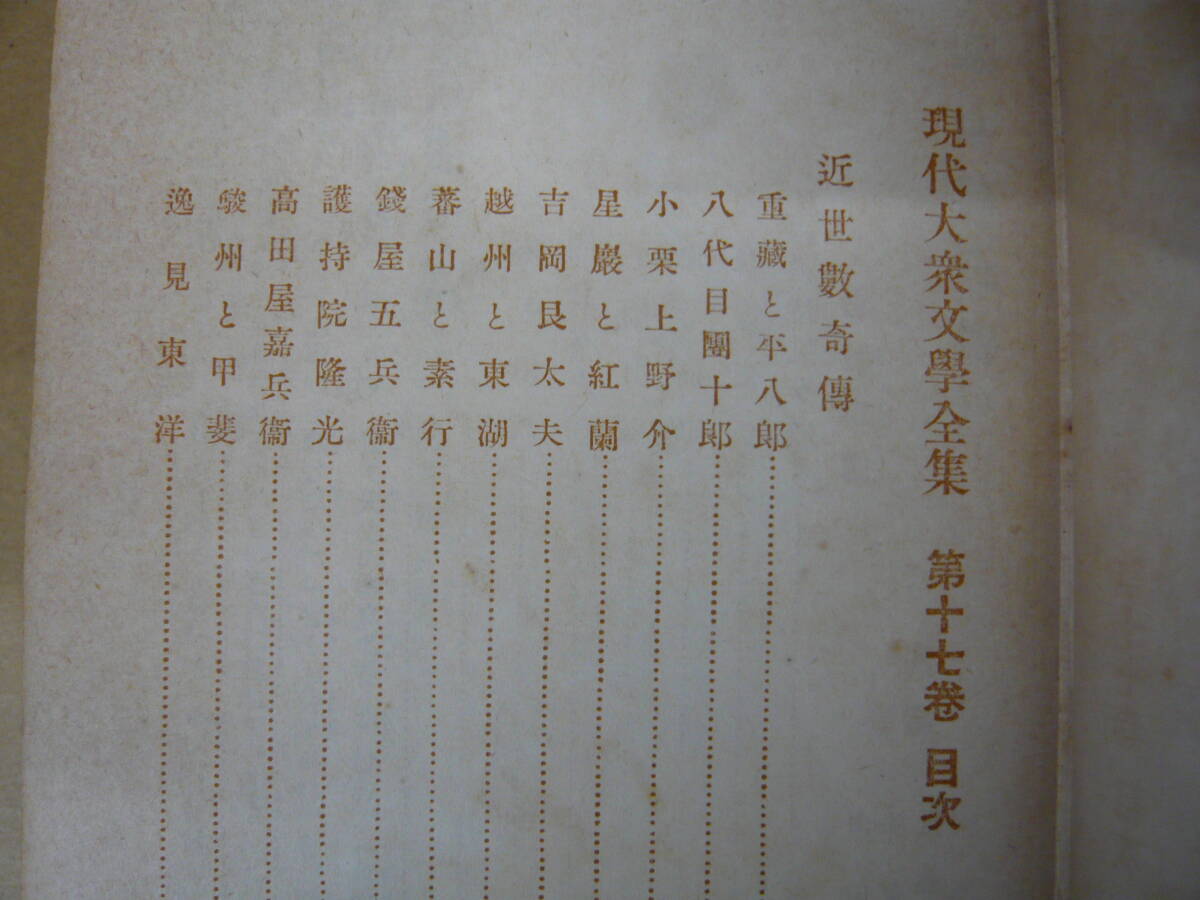 現代大衆文學全集 第十七卷 目次
近世數奇傳
重藏と平八郎
八代目團十郎
小栗上野介
星巖と紅蘭
吉岡艮太夫
越州と東湖
蕃山と素行
錢屋五兵衞
護持院隆光
高田屋嘉兵衞
駿州と甲斐
逸見東洋